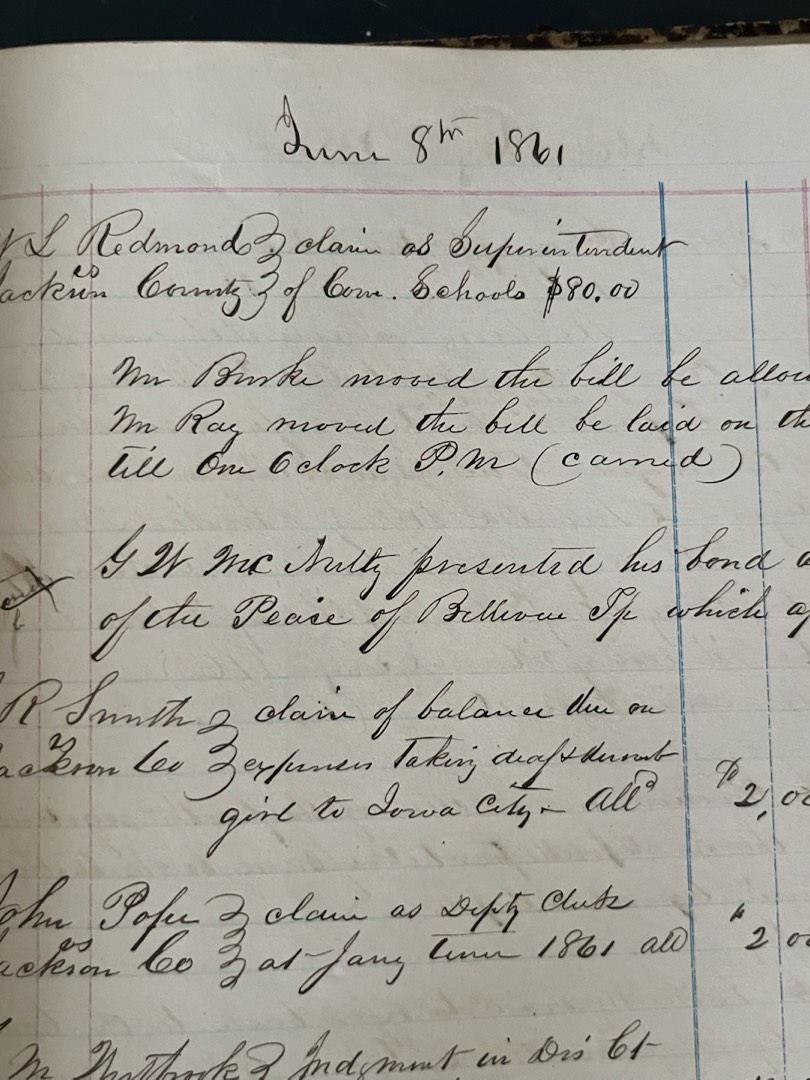 June 8th 1861
L Redmond } claim as Superintendent
vs
Jackson County } of Com. Schools $80.00
Mr Burke moved the bill be allow
Mr Ray moved the bill be laid on th
till One Oclock P.M (carried)
G W McNulty presented his bond a
of the Peace of Bellevue Tp which ap
R Smith } claim of balance due on
vs
Jackson Co } expenses taking deaf & dumb
girl to Iowa City - Alld $2,00
John Pope } claim as Depty Clerk
vs
Jackson Co } at Jany term 1861 alld " 2 00
M Westbrook } Judgment in Dis Ct